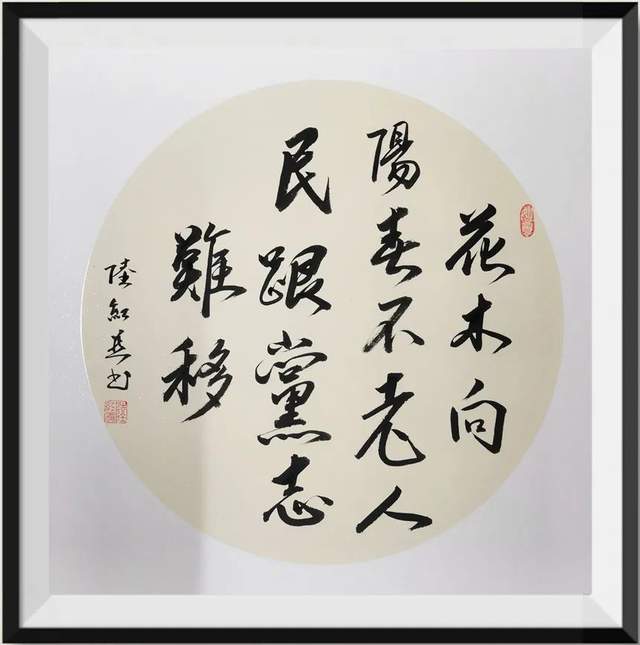 花木向
陽春不老人
民跟黨志
難移
陸紅兵书